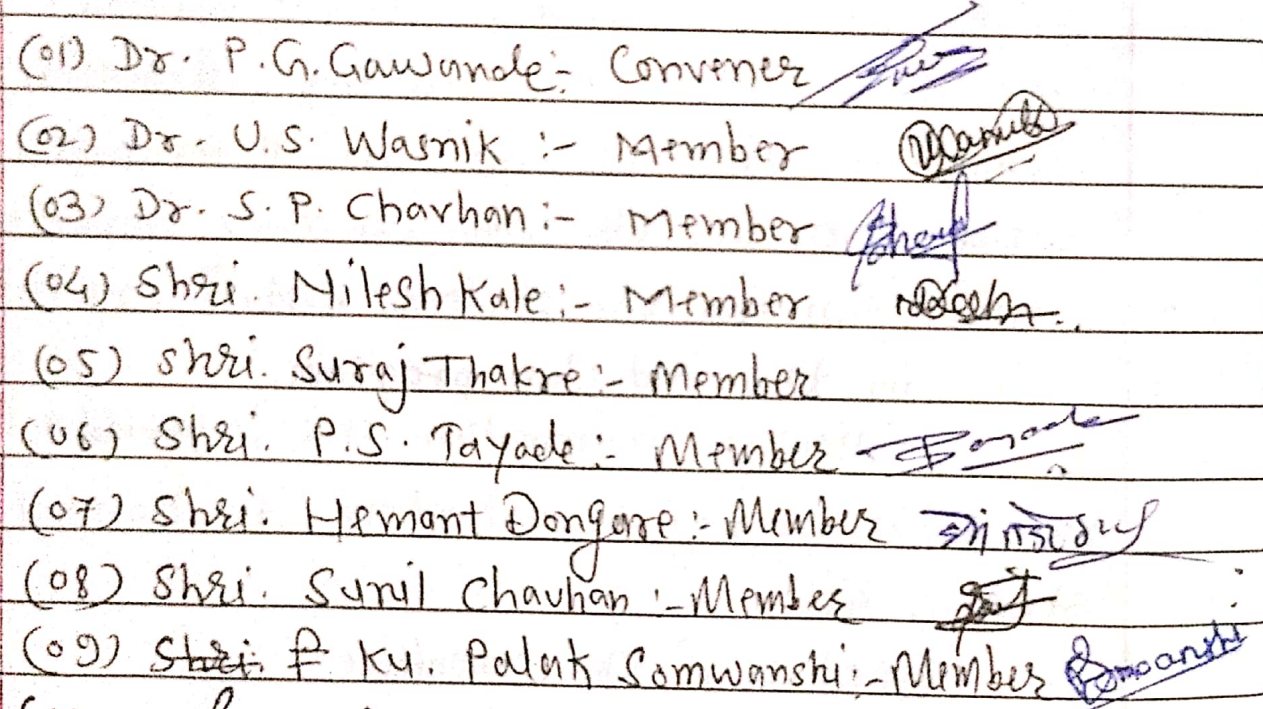 (01) Dr. P.G. Gawande:- Convener
(02) Dr. U.S. Wasnik :- Member
(03) Dr. S. P. Chavhan :- Member
(04) Shri. Nilesh Kale :- Member
(05) Shri. Suraj Thakre :- Member
(06) Shri. P.S. Tayade :- Member
(07) Shri. Hemant Dongare :- Member
(08) Shri. Sunil Chauhan :- Member
(09) Ku. Palak Somwanshi :- Member